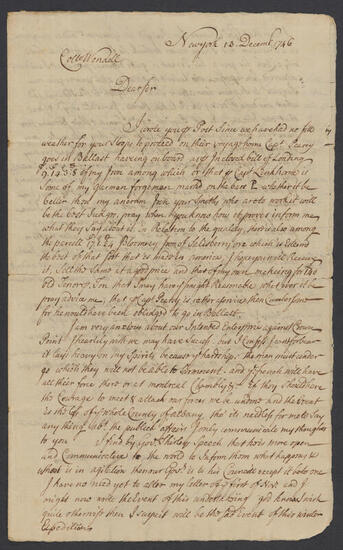 New york 13. Decemb. 1746
Coll Wendell
Dear Sir
I wrote you Post Since we have had no fitt
weather for your Sloops to proceed on their Voyage home Capt
goes in Ballast having on board as Inclosed bill of Loading
of my Iron among which or that of Capt is
Some of my German forgeman marked on the bars P whether it be
better then my
the best Judge, pray when you know how it proves inform me
what they Say about it in Relation to the quality, there is also among
the parcell Bloomery Iron of Salisbery, one which is Esteemd
the best of that Sort that is made in america, I hope you will Receive
it, Sell the Same at a good price and that of my own makeing for
old Tenor Ton that I may have freight Reasonable, what ever it be
pray advise me, that of Capt is rather a Service then
for he would have been obliedged to go in Ballast.
I am very anxious about our Intended Enterprise against Crown
Point I heartily wish we may have Success, but I Confess fears
it lays heavy on my Spirits because of hardships the men must under
go which they will not be able to Surmount. and french will have
all their force there or at montreal Chambly & Should have
the Courage to meet & attack our forces we be undone and the Event
is the loss of whole County of albany tho its needless for me to Say
any thing about publick affairs I only communicate my thoughts
to you I find by Gov Shirley Speech that he is more open
and Communicative to the world to Inform them what happens &
what is in agitation then our Gov is to his Councile Except
I have no need yet to alter my letter of first of Nov and I
might now write the Event of this undertakeing god knows
quite otherwise then I Suspect will be the Sad Event of this winter
Expedition